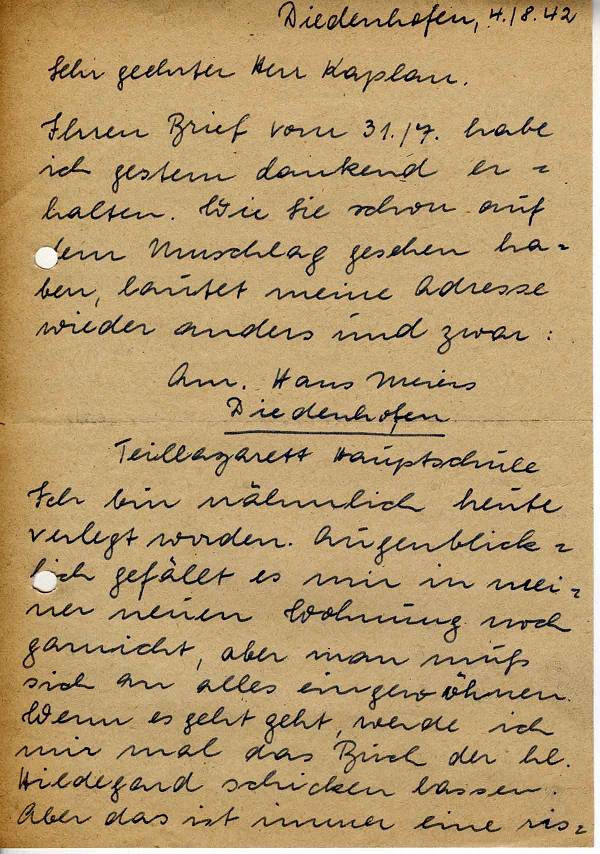 Diedenhofen, 4./8.42
Sehr geehrter Herr Kaplan.
Ihren Brief vom 31./7. habe
ich gestern dankend er =
halten. Wie Sie schon auf
dem Umschlag gesehen ha=
ben, lautet meine Adresse
wieder anders und zwar:
Hans Meiers
Diedenhofen
Teillazarett Hauptschule
Ich bin nähmlich heute
verlegt worden. Augenblick=
lich gefällt es mir in mei=
ner neuen Wohnung noch
garnicht, aber man muß
sich an alles eingewöhnen.
Wenn es geht geht, werde ich
mir mal das Buch der hl.
Hildegard schicken lassen.
Aber das ist immer eine ris=